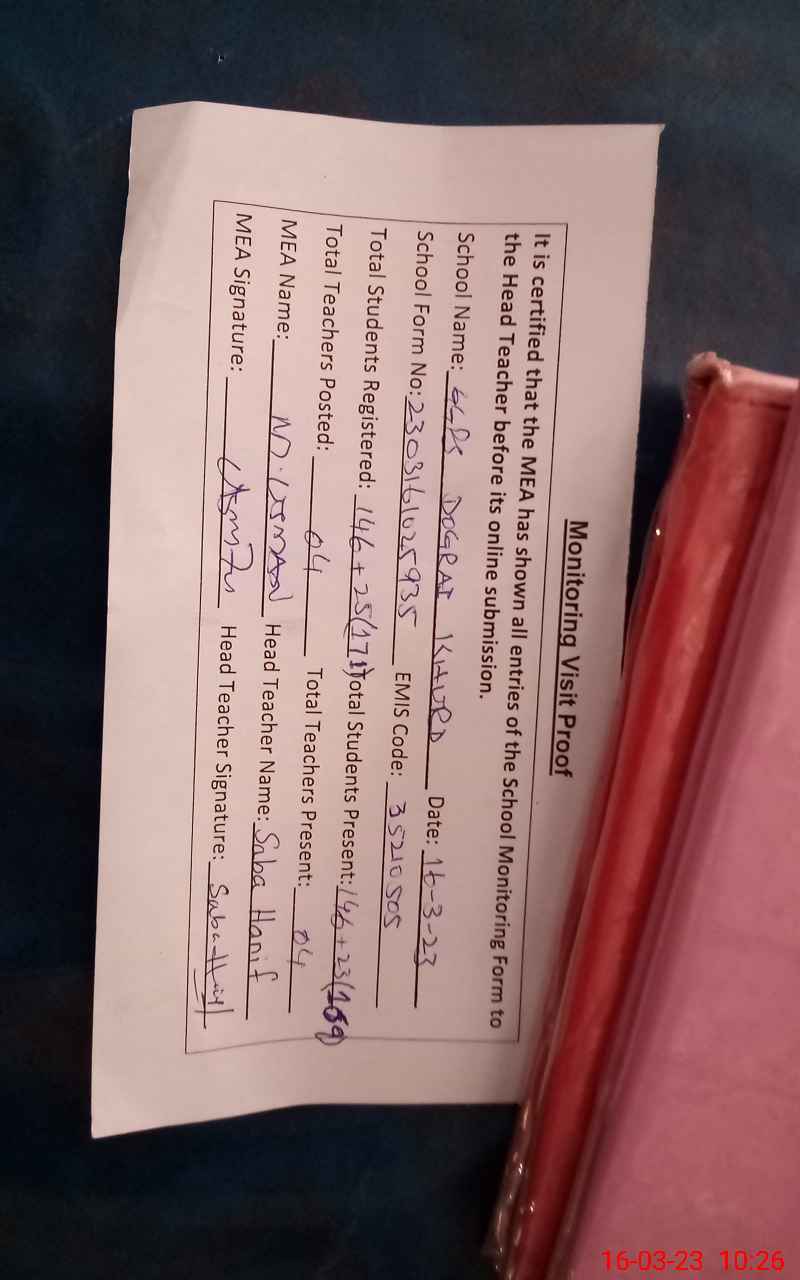 Monitoring Visit Proof
It is certified that the MEA has shown all entries of the School Monitoring Form to
the Head Teacher before its online submission.
School Name: GGPS DOGRAI KHURD Date: 16-3-23
School Form No: 2303161025935 EMIS Code: 35210505
Total Students Registered: 146+25(171) Total Students Present: 146+23(169)
Total Teachers Posted: 04 Total Teachers Present: 04
MEA Name: M. USMAN Head Teacher Name: Saba Hanif
MEA Signature: Usman Head Teacher Signature: Saba Hanif
16-03-23 10:26